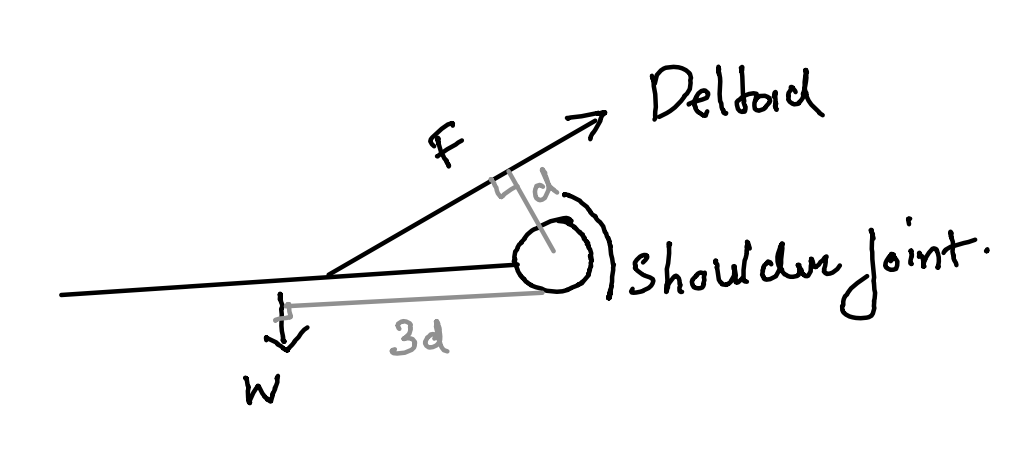 Deltoid
F
d
Shoulder Joint.
3d
W